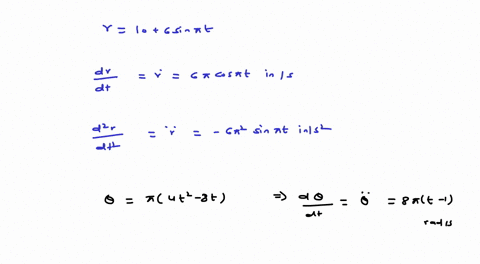 r = 10 + 6 sin πt
dr/dt = ṙ = 6π cos πt in/s
d²r/dt² = r̈ = -6π² sin πt in/s²
θ = π(4t² - 8t) ⇒ dθ/dt = θ̈ = 8π(t - 1)
rad/s